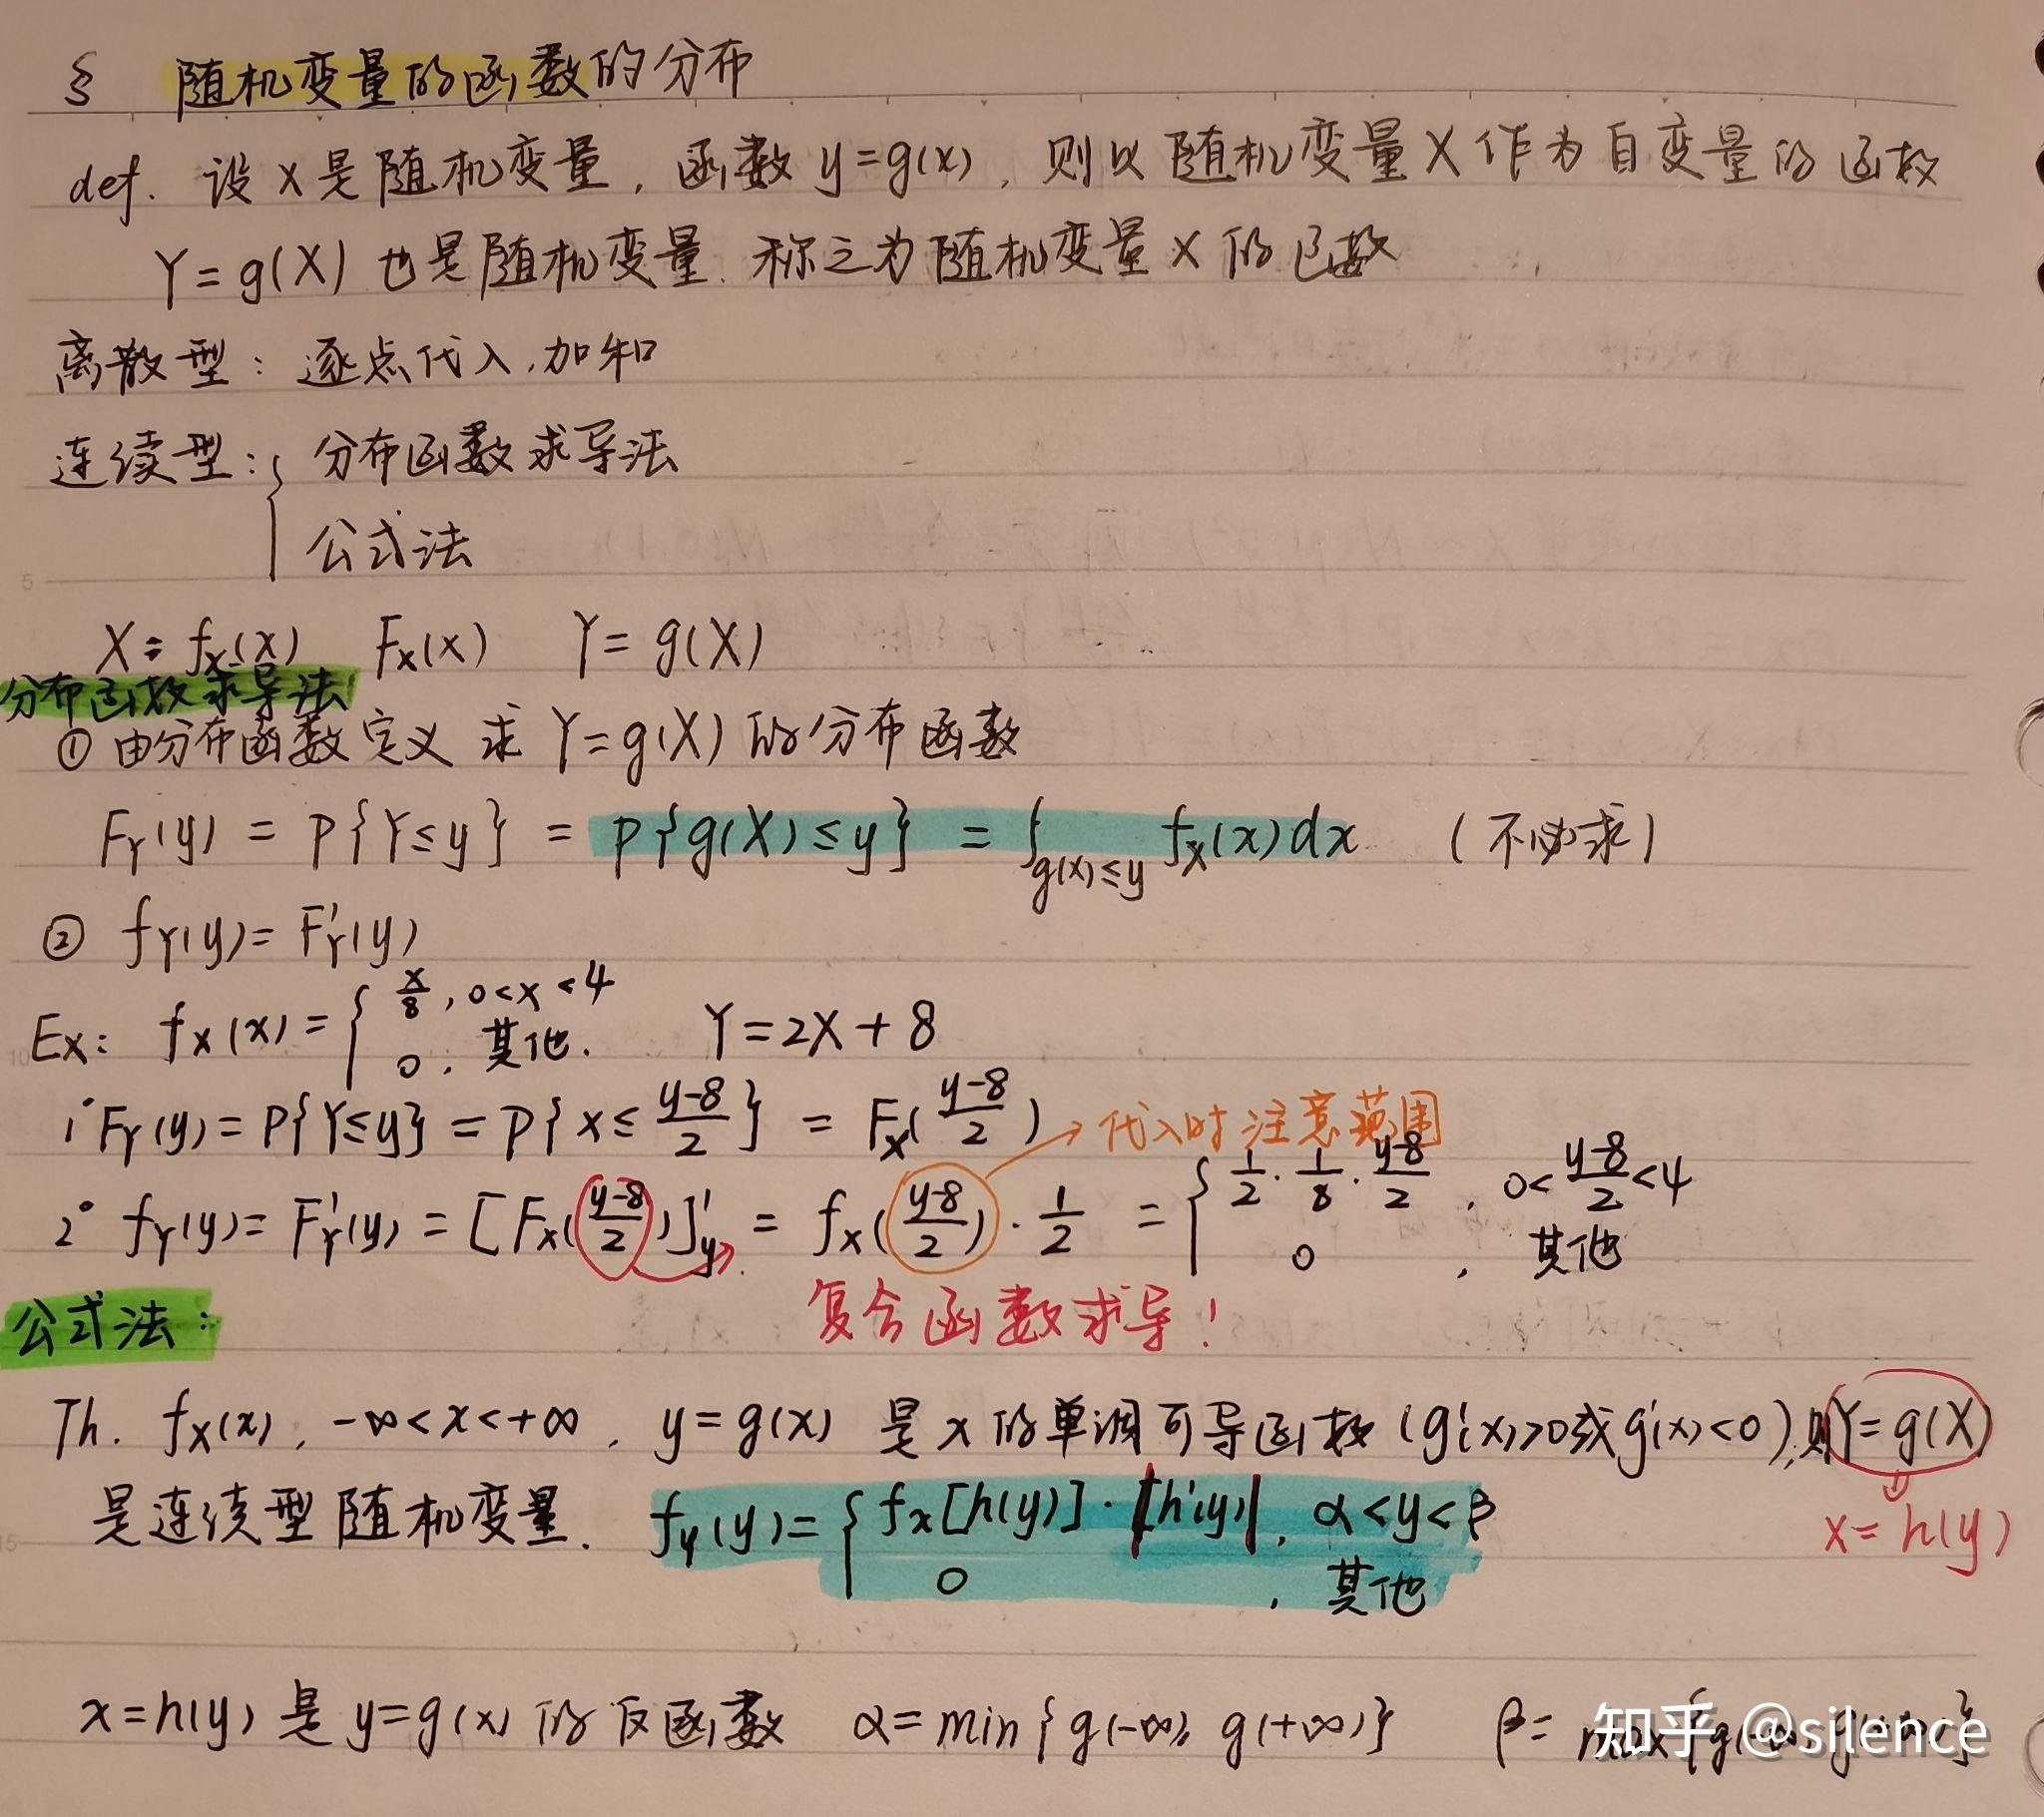 § 随机变量的函数的分布
def. 设X是随机变量，函数 y=g(x)，则以随机变量X作为自变量的函数
Y=g(X) 也是随机变量. 称之为随机变量X的函数
离散型：逐点代入,加和
连续型：{ 分布函数求导法
公式法
X: fX(x) FX(x) Y=g(X)
分布函数求导法
① 由分布函数定义 求 Y=g(X) 的分布函数
FY(y) = P{Y≤y} = P{g(X)≤y} = ∫g(x)≤y fX(x)dx (不必求)
② fY(y)=F'Y(y)
Ex: fX(x)={ x/8, 0<x<4
0, 其他. Y=2X+8
1° FY(y)=P{Y≤y}=P{X≤(y-8)/2} = FX((y-8)/2) → 代入时注意范围
2° fY(y)=F'Y(y)=[FX((y-8)/2)]'y = fX((y-8)/2)·1/2 = { 1/2·1/8·(y-8)/2, 0<(y-8)/2<4
0, 其他
复合函数求导!
公式法:
Th. fX(x), -∞<x<+∞, y=g(x) 是x的单调可导函数 (g'(x)>0或g'(x)<0),则Y=g(X)
是连续型随机变量. fY(y)={ fX[h(y)]·|h'(y)|, α<y<β
x=h(y)
0, 其他
x=h(y) 是 y=g(x) 的反函数 α=min{g(-∞), g(+∞)} β= max{g(-∞), g(+∞)}
知乎 @silence